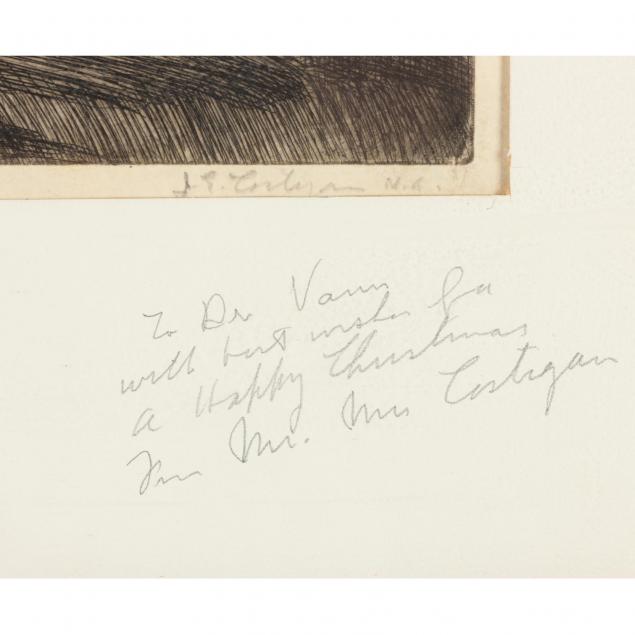 J.E. Costigan N.A.
To Dr Vann
with best wishes for
a Happy Christmas
from Mr. Mrs Costigan